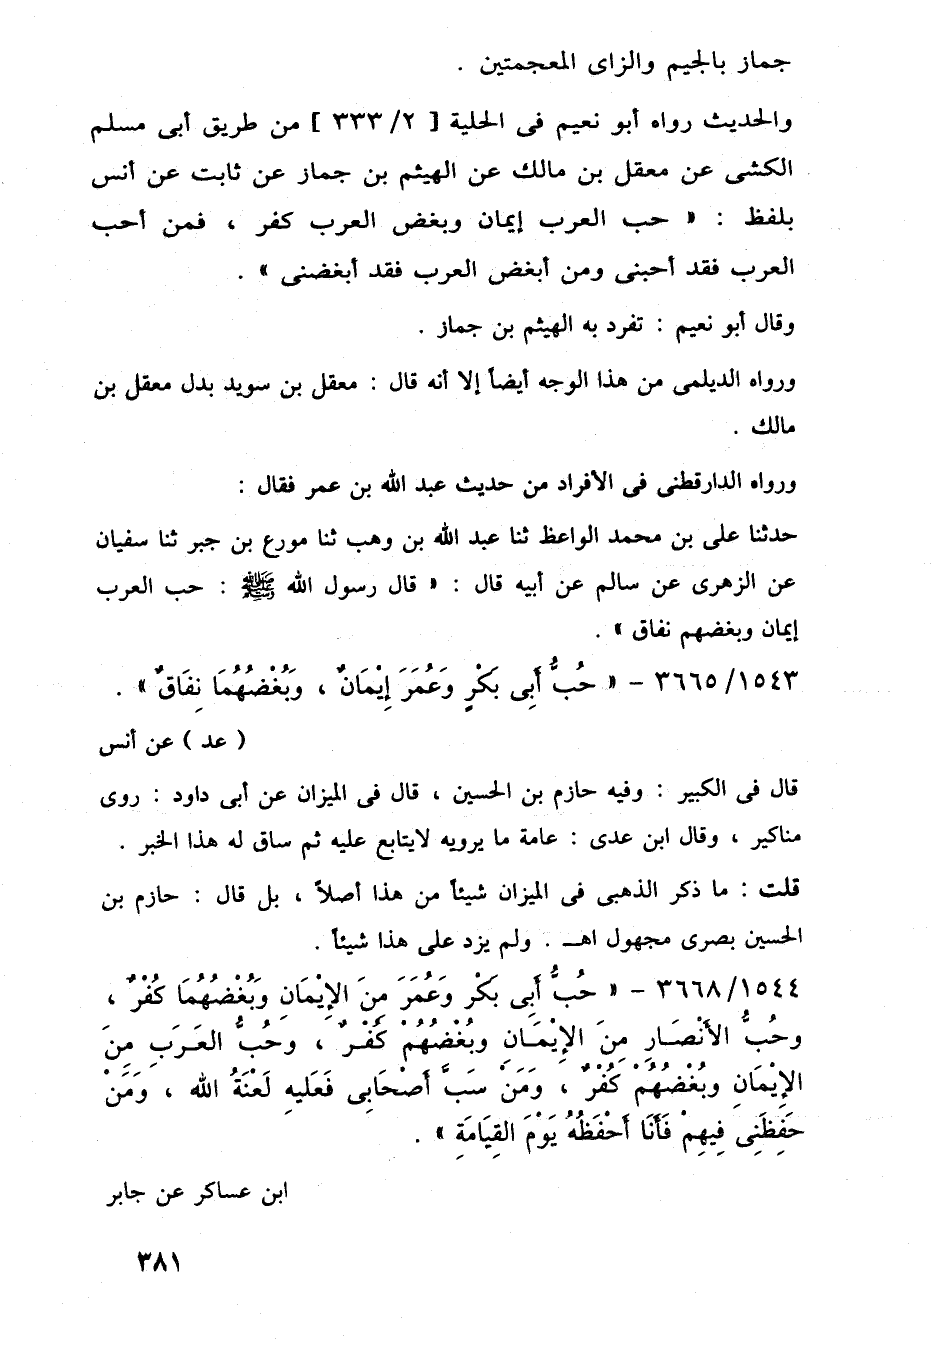 جماز بالجيم والزاى المعجمتين .
والحديث رواه أبو نعيم فى الحلية [ ٢/ ٣٣٣ ] من طريق أبى مسلم
الكشى عن معقل بن مالك عن الهيثم بن جماز عن ثابت عن أنس
بلفظ : « حب العرب إيمان وبغض العرب كفر ، فمن أحب
العرب فقد أحبنى ومن أبغض العرب فقد أبغضنى » .
وقال أبو نعيم : تفرد به الهيثم بن جماز .
ورواه الديلمى من هذا الوجه أيضاً إلا أنه قال : معقل بن سويد بدل معقل بن
مالك .
ورواه الدارقطنى فى الأفراد من حديث عبد الله بن عمر فقال :
حدثنا على بن محمد الواعظ ثنا عبد الله بن وهب ثنا مورع بن جبر ثنا سفيان
عن الزهرى عن سالم عن أبيه قال : « قال رسول الله ﷺ : حب العرب
إيمان وبغضهم نفاق » .
٣٦٦٥/١٥٤٣ – « حُبُّ أَبِى بَكْرٍ وَعُمَرَ إِيْمَانٌ ، وَبُغْضُهُمَا نِفَاقٌ » .
( عد ) عن أنس
قال فى الكبير : وفيه حازم بن الحسين ، قال فى الميزان عن أبى داود : روى
مناكير ، وقال ابن عدى : عامة ما يرويه لايتابع عليه ثم ساق له هذا الخبر .
قلت : ما ذكر الذهبى فى الميزان شيئاً من هذا أصلاً ، بل قال : حازم بن
الحسين بصرى مجهول اهـ . ولم يزد على هذا شيئاً .
٣٦٦٨/١٥٤٤ – « حُبُّ أَبِى بَكْر وعُمَرَ مِنَ الإِيْمَانِ وَبُغْضُهُمَا كُفْرٌ ،
وحُبُّ الأَنْصَارِ مِنَ الإِيْمَانِ وبُغْضُهُمْ كُفْرٌ ، وحُبُّ العَرَبِ مِنَ
الإِيْمَانِ وبُغْضُهُمْ كُفْرٌ ، وَمَنْ سَبَّ أَصْحَابِى فَعَلَيهِ لَعْنَةُ الله ، وَمَنْ
حَفِظَنِى فِيهِمْ فَأَنَا أَحْفَظُهُ يَوْمَ القِيَامَةِ » .
ابن عساكر عن جابر
٣٨١